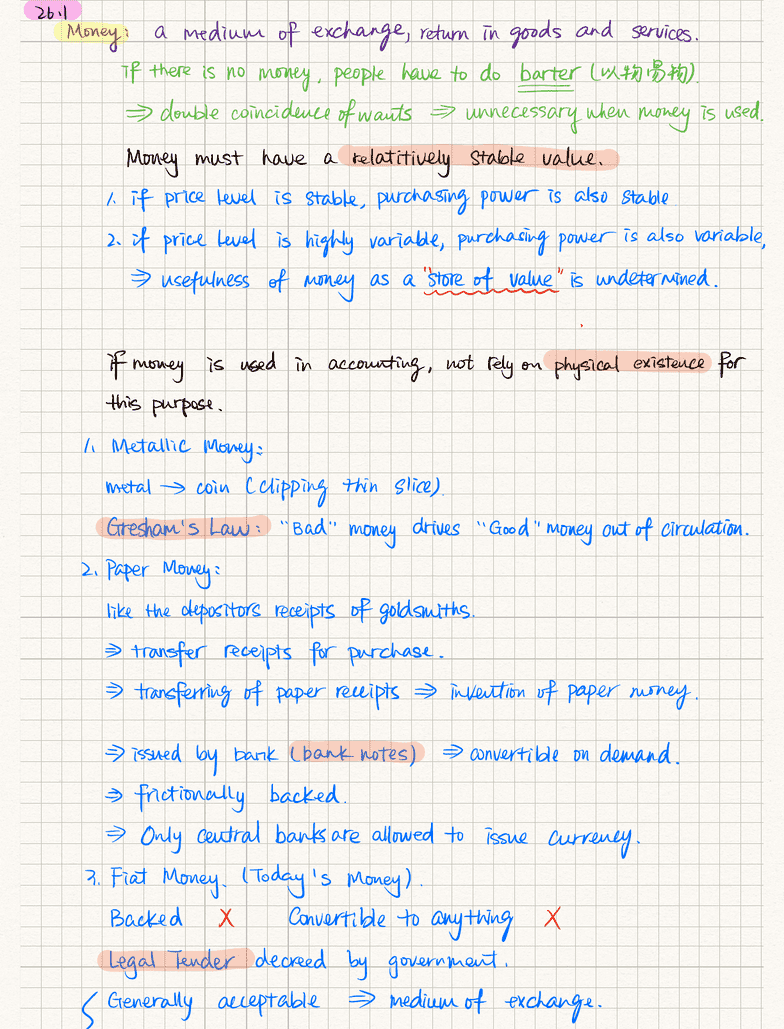 26.1
Money: a medium of exchange, return in goods and services.
if there is no money, people have to do barter (以物易物)
⇒ double coincidence of wants ⇒ unnecessary when money is used.
Money must have a relatitively stable value.
1. if price level is stable, purchasing power is also stable
2. if price level is highly variable, purchasing power is also variable,
⇒ usefulness of money as a "store of value" is undetermined.
if money is used in accounting, not rely on physical existence for
this purpose.
1. Metallic Money:
metal → coin (clipping thin slice).
Gresham's Law: "Bad" money drives "Good" money out of circulation.
2. Paper Money:
like the depositors receipts of goldsmiths.
⇒ transfer receipts for purchase.
⇒ transferring of paper receipts ⇒ invention of paper money.
⇒ issued by bank (bank notes) ⇒ convertible on demand.
⇒ frictionally backed.
⇒ Only central banks are allowed to issue currency.
3. Fiat Money. (Today's Money).
Backed X Convertible to anything X
Legal Tender decreed by government.
Generally acceptable ⇒ medium of exchange.